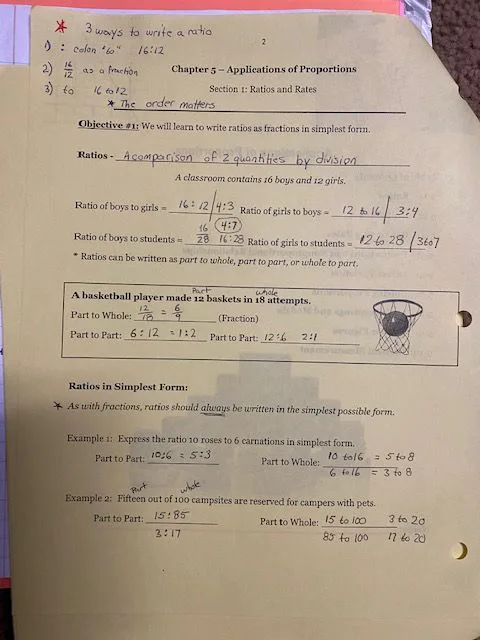 * 3 ways to write a ratio
1) : colon "to" 16:12
2
2) 16/12 as a fraction
Chapter 5 – Applications of Proportions
3) to 16 to 12
Section 1: Ratios and Rates
* The order matters
Objective #1: We will learn to write ratios as fractions in simplest form.
Ratios - A comparison of 2 quantities by division
A classroom contains 16 boys and 12 girls.
Ratio of boys to girls = 16:12 / 4:3 Ratio of girls to boys = 12 to 16 / 3:4
Ratio of boys to students = 16/28 16:28 4:7 Ratio of girls to students = 12 to 28 / 3 to 7
* Ratios can be written as part to whole, part to part, or whole to part.
Part whole
A basketball player made 12 baskets in 18 attempts.
Part to Whole: 12/18 = 6/9 (Fraction)
Part to Part: 6:12 = 1:2 Part to Part: 12:6 2:1
Ratios in Simplest Form:
* As with fractions, ratios should always be written in the simplest possible form.
Example 1: Express the ratio 10 roses to 6 carnations in simplest form.
Part to Part: 10:6 = 5:3 Part to Whole: 10 to 16 = 5 to 8
6 to 16 = 3 to 8
Part whole
Example 2: Fifteen out of 100 campsites are reserved for campers with pets.
Part to Part: 15:85 Part to Whole: 15 to 100 3 to 20
3:17 85 to 100 17 to 20